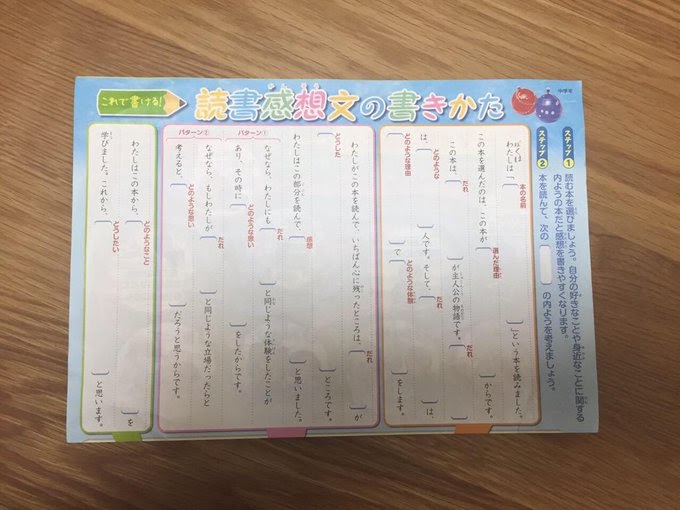 これで書ける!
読書感想文の書きかた
中学年
ステップ1 読む本を選びましょう。自分の好きなことや身近なことに関する
内ようの本だと感想を書きやすくなります。
ステップ2 本を読んで、次の[ ]の内ようを考えましょう。
ぼくは
わたしは[ ]という本を読みました。
本の名前
この本を選んだのは、この本が[ ]からです。
選んだ理由
この本は、[ ]が主人公の物語です。[ ]
だれ
だれ
は、[ ]人です。そして、[ ]は、
どのような
だれ
[ ]で[ ]をします。
どのような理由
どのような体験
わたしがこの本を読んで、いちばん心に残ったところは、[ ]が
だれ
[ ]ところです。
どうした
わたしはこの部分を読んで、[ ]と思いました。
感想
パターン①
なぜなら、わたしにも[ ]と同じような体験をしたことが
だれ
あり、その時に[ ]をしたからです。
どのような思い
パターン②
なぜなら、もしわたしが[ ]と同じような立場だったらと
だれ
考えると、[ ]だろうと思うからです。
どのような思い
わたしはこの本から、[ ]を
どのようなこと
学びました。これから、[ ]と思います。
どうしたい